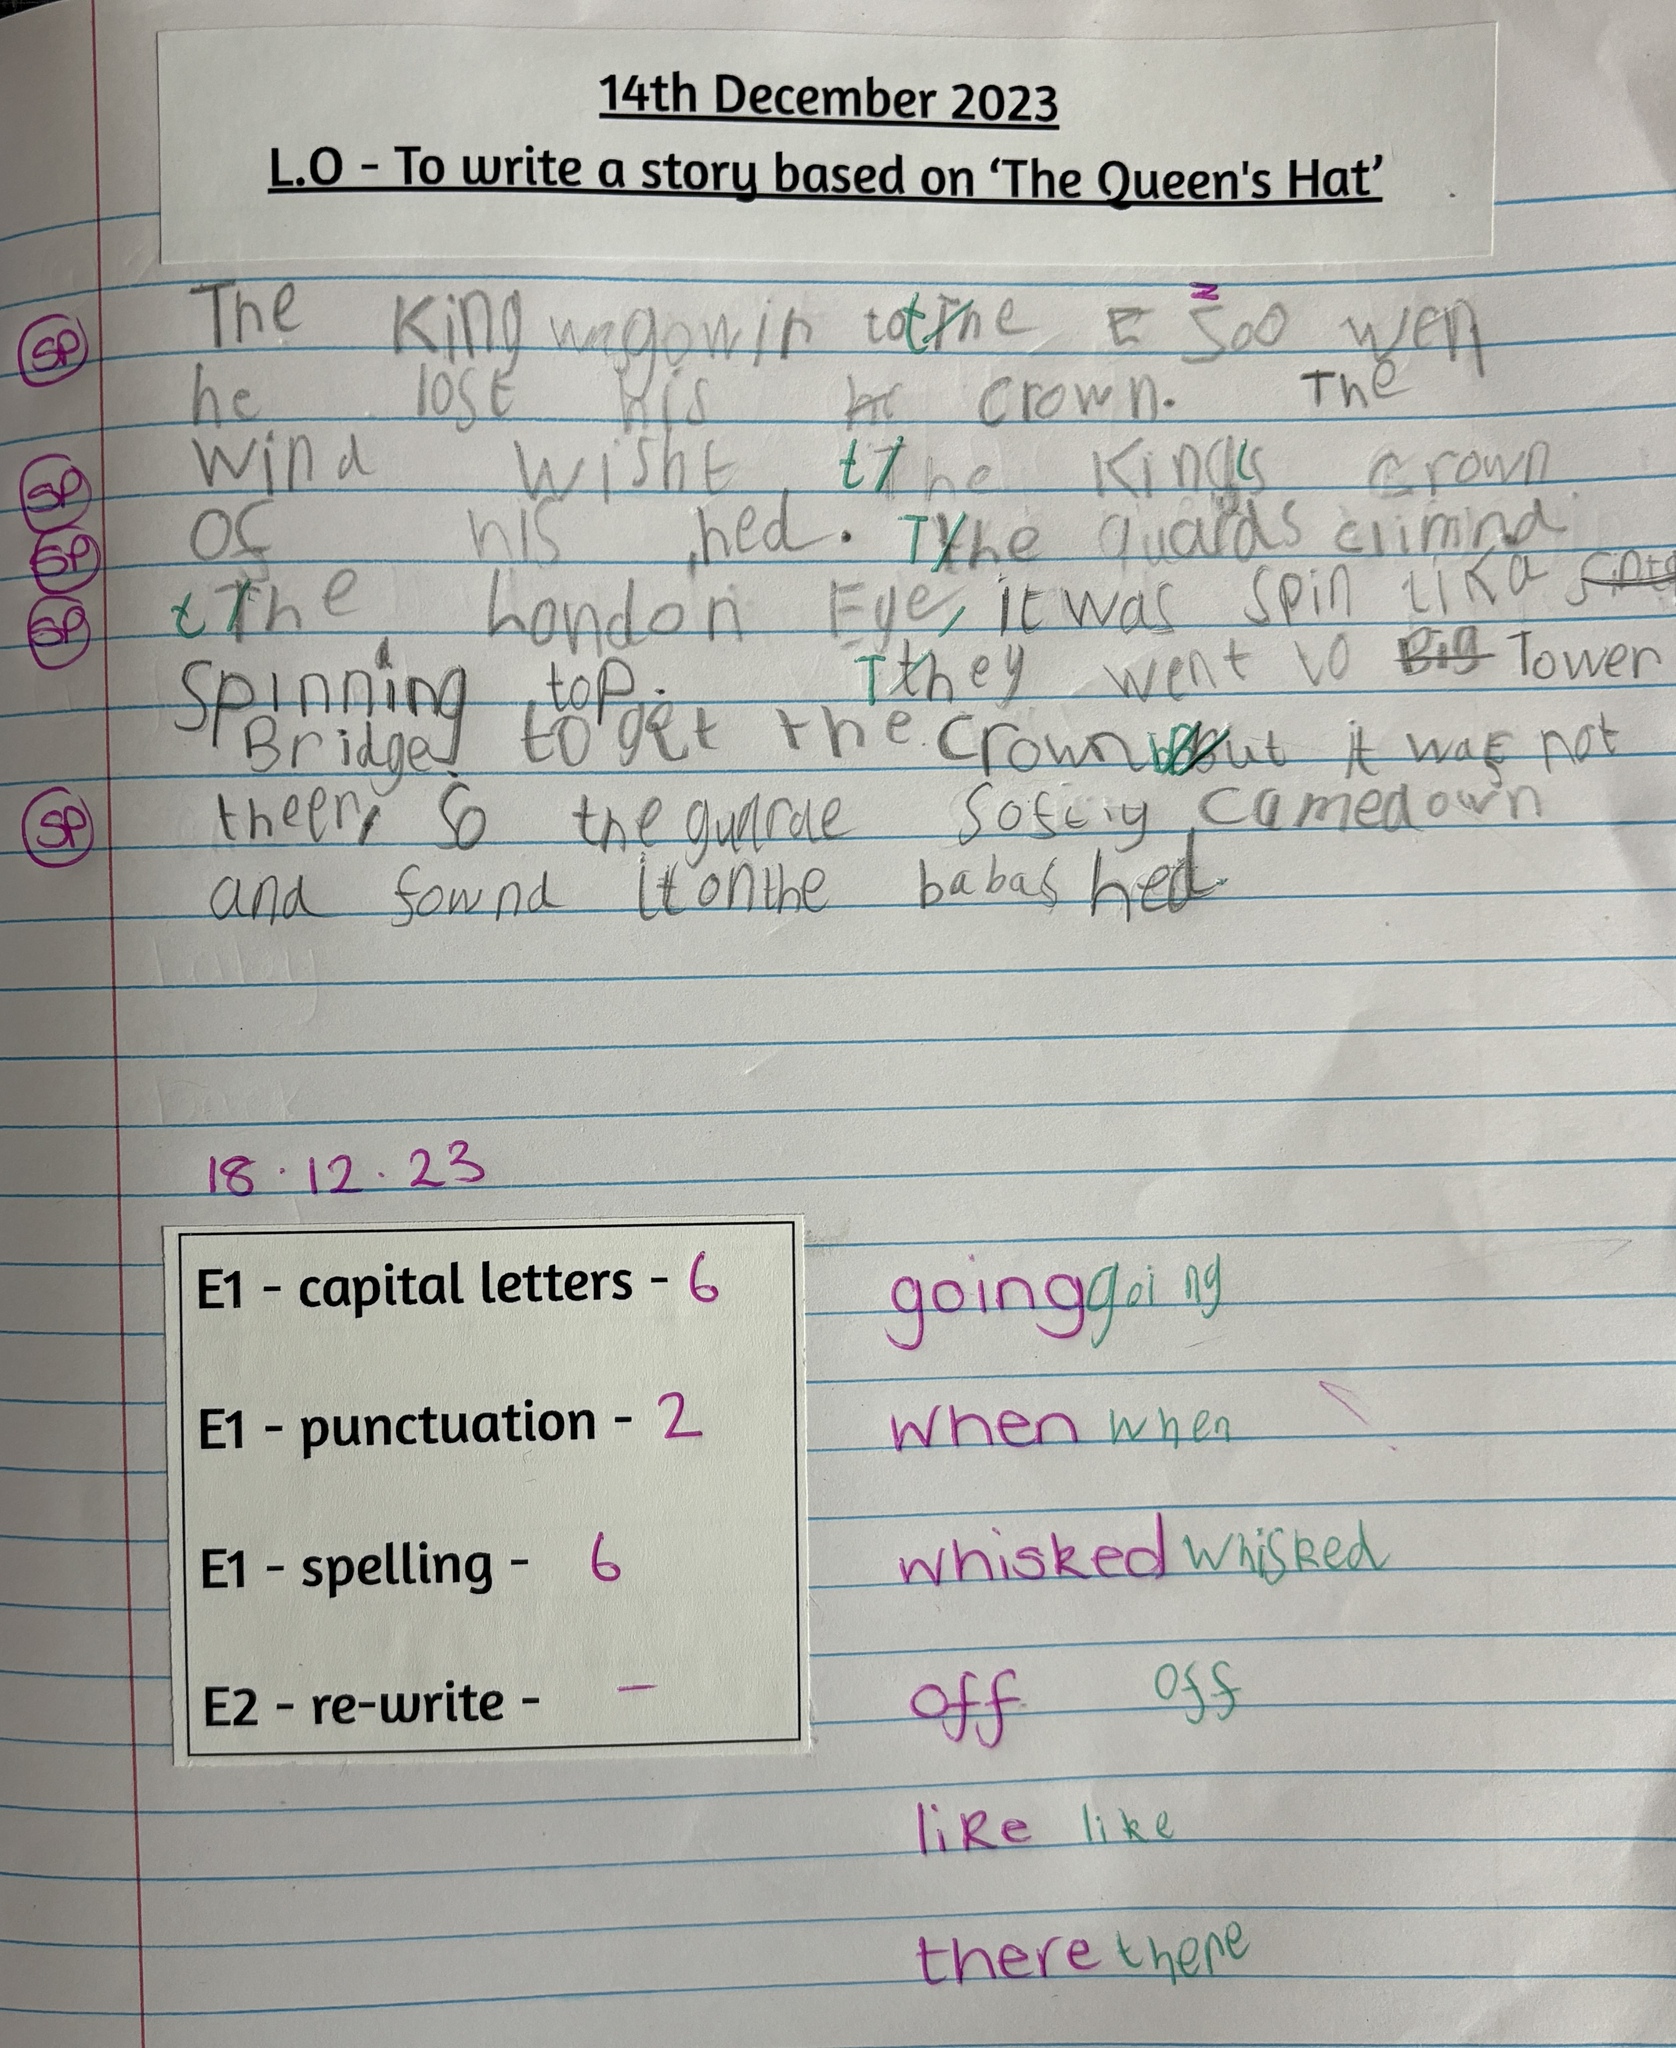 14th December 2023
L.O - To write a story based on ‘The Queen's Hat’
The King wagowin to the Zoo wen
SP
he lost his crown. The
wind wisht the King's crown
SP
of his hed. The guards climind
SP
the London Eye, it was spin lika
SP
Spinning top. They went to Big Tower
Bridge to get the crown but it was not
theer, so the guarde softly came down
SP
and fownd it on the babas hed.
18.12.23
E1 - capital letters - 6
going going
E1 - punctuation - 2
when when
E1 - spelling - 6
whisked whisked
E2 - re-write - –
off off
like like
there there